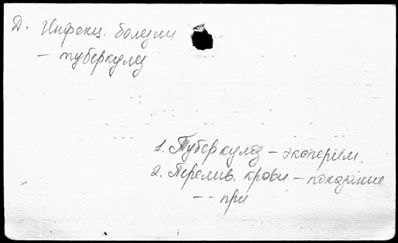 Д. Инфекц. болезни
— туберкулез
1. Туберкулез — эксперим.
2. Перелив. крови — показание
— при